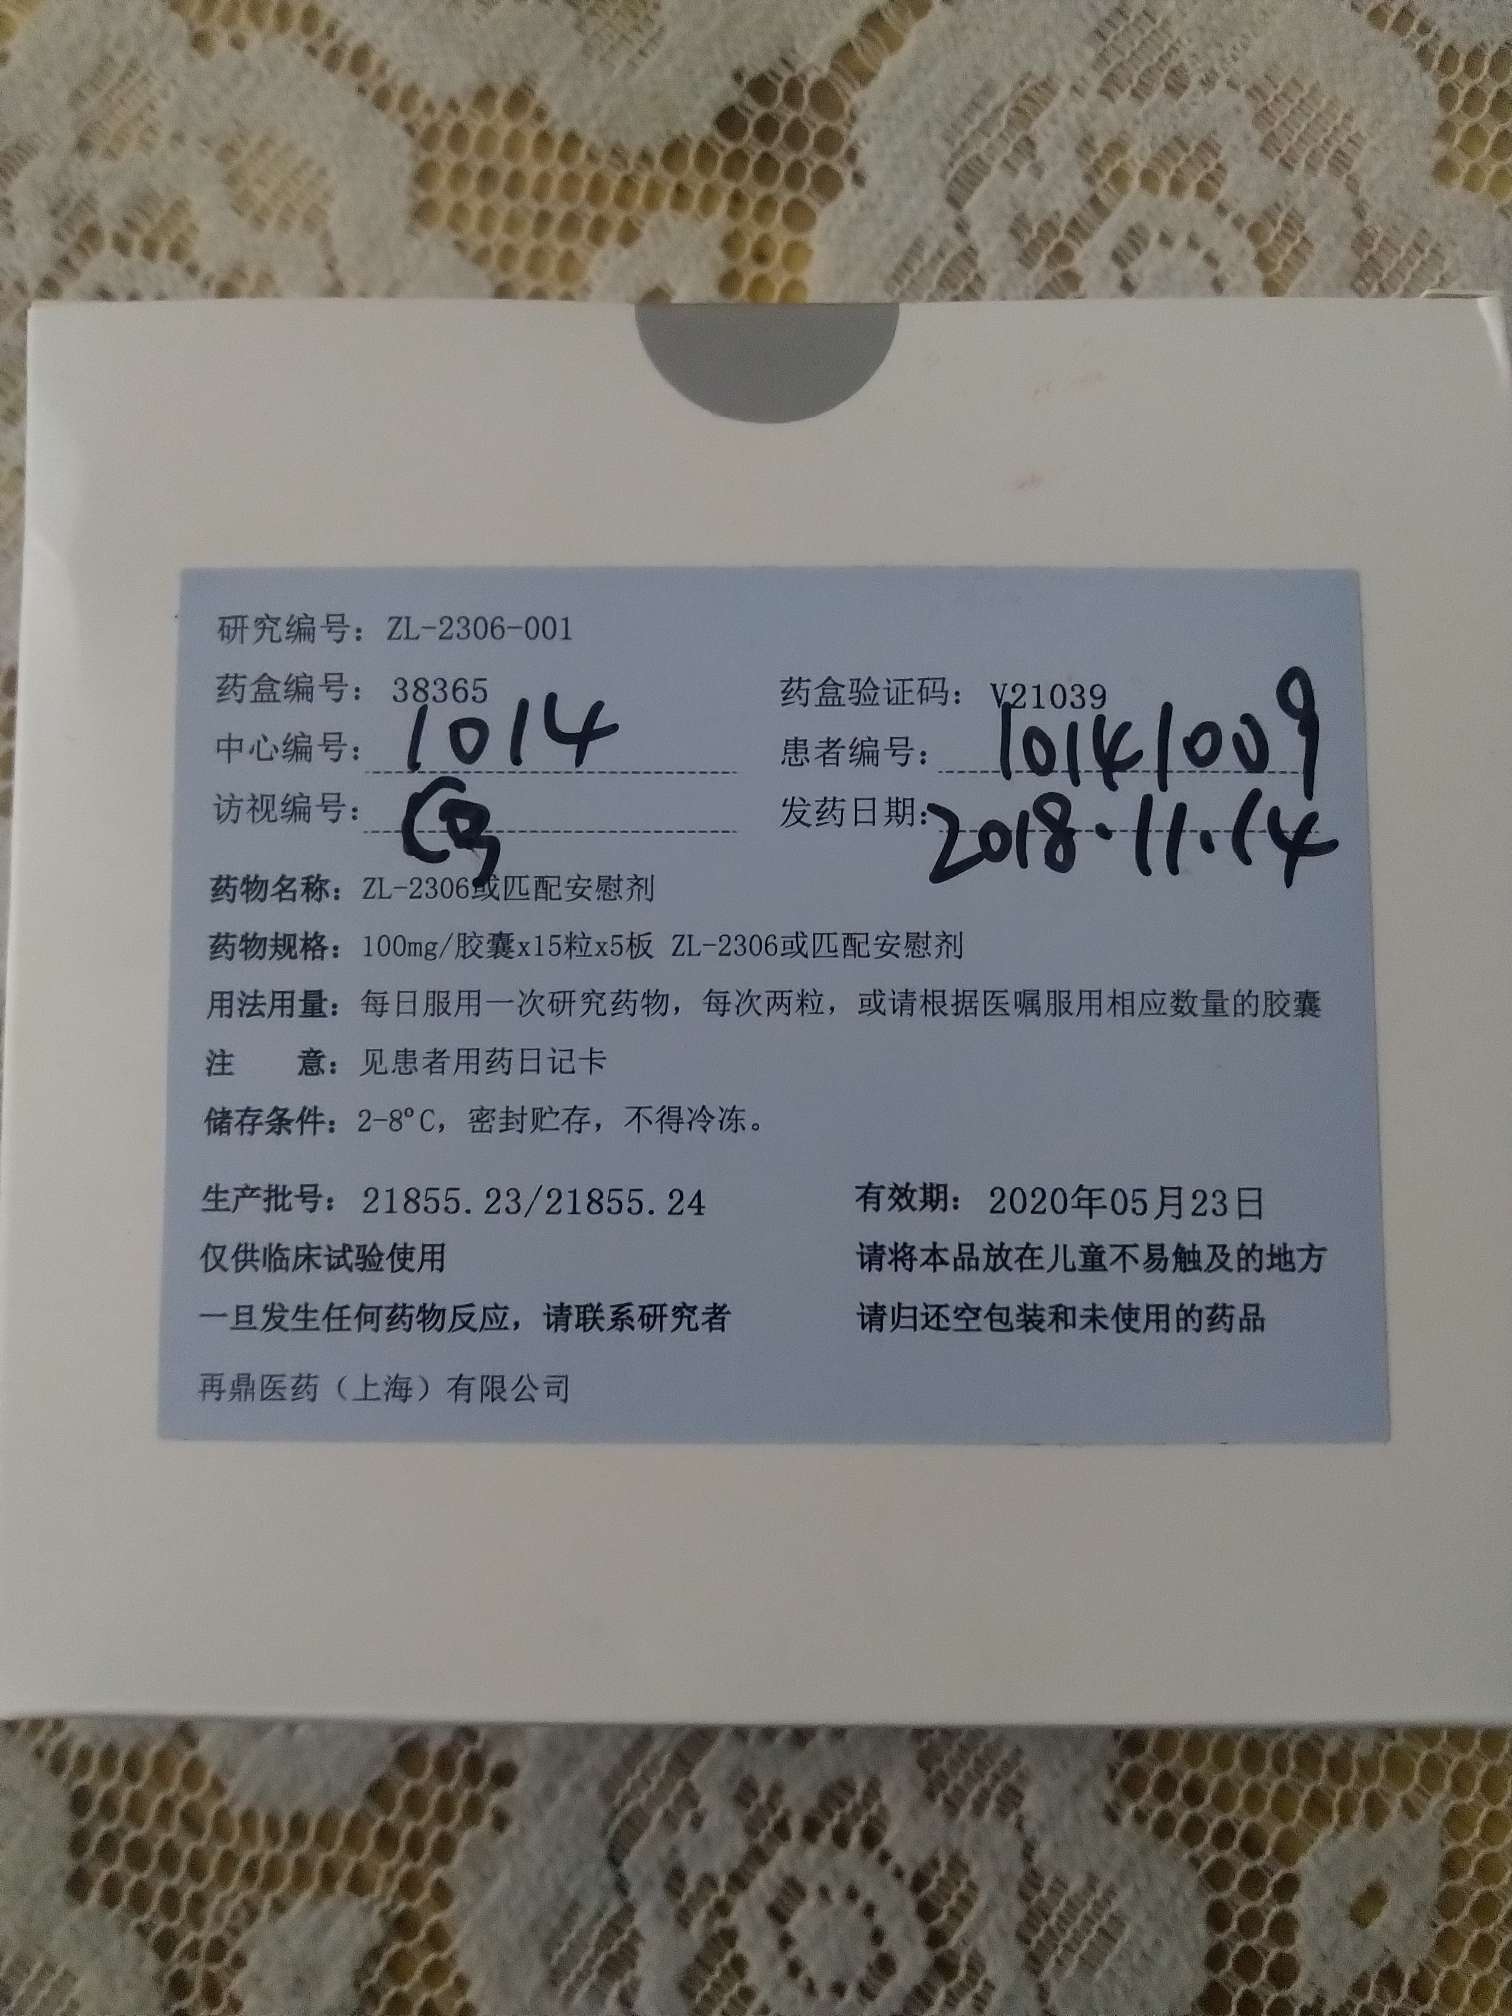 研究编号：ZL-2306-001
药盒编号：38365 药盒验证码：V21039
中心编号：1014 患者编号：10141009
访视编号： 发药日期：2018.11.14
药物名称：ZL-2306或匹配安慰剂
药物规格：100mg/胶囊x15粒x5板 ZL-2306或匹配安慰剂
用法用量：每日服用一次研究药物，每次两粒，或请根据医嘱服用相应数量的胶囊
注 意：见患者用药日记卡
储存条件：2-8°C，密封贮存，不得冷冻。
生产批号：21855.23/21855.24 有效期：2020年05月23日
仅供临床试验使用 请将本品放在儿童不易触及的地方
一旦发生任何药物反应，请联系研究者 请归还空包装和未使用的药品
再鼎医药（上海）有限公司